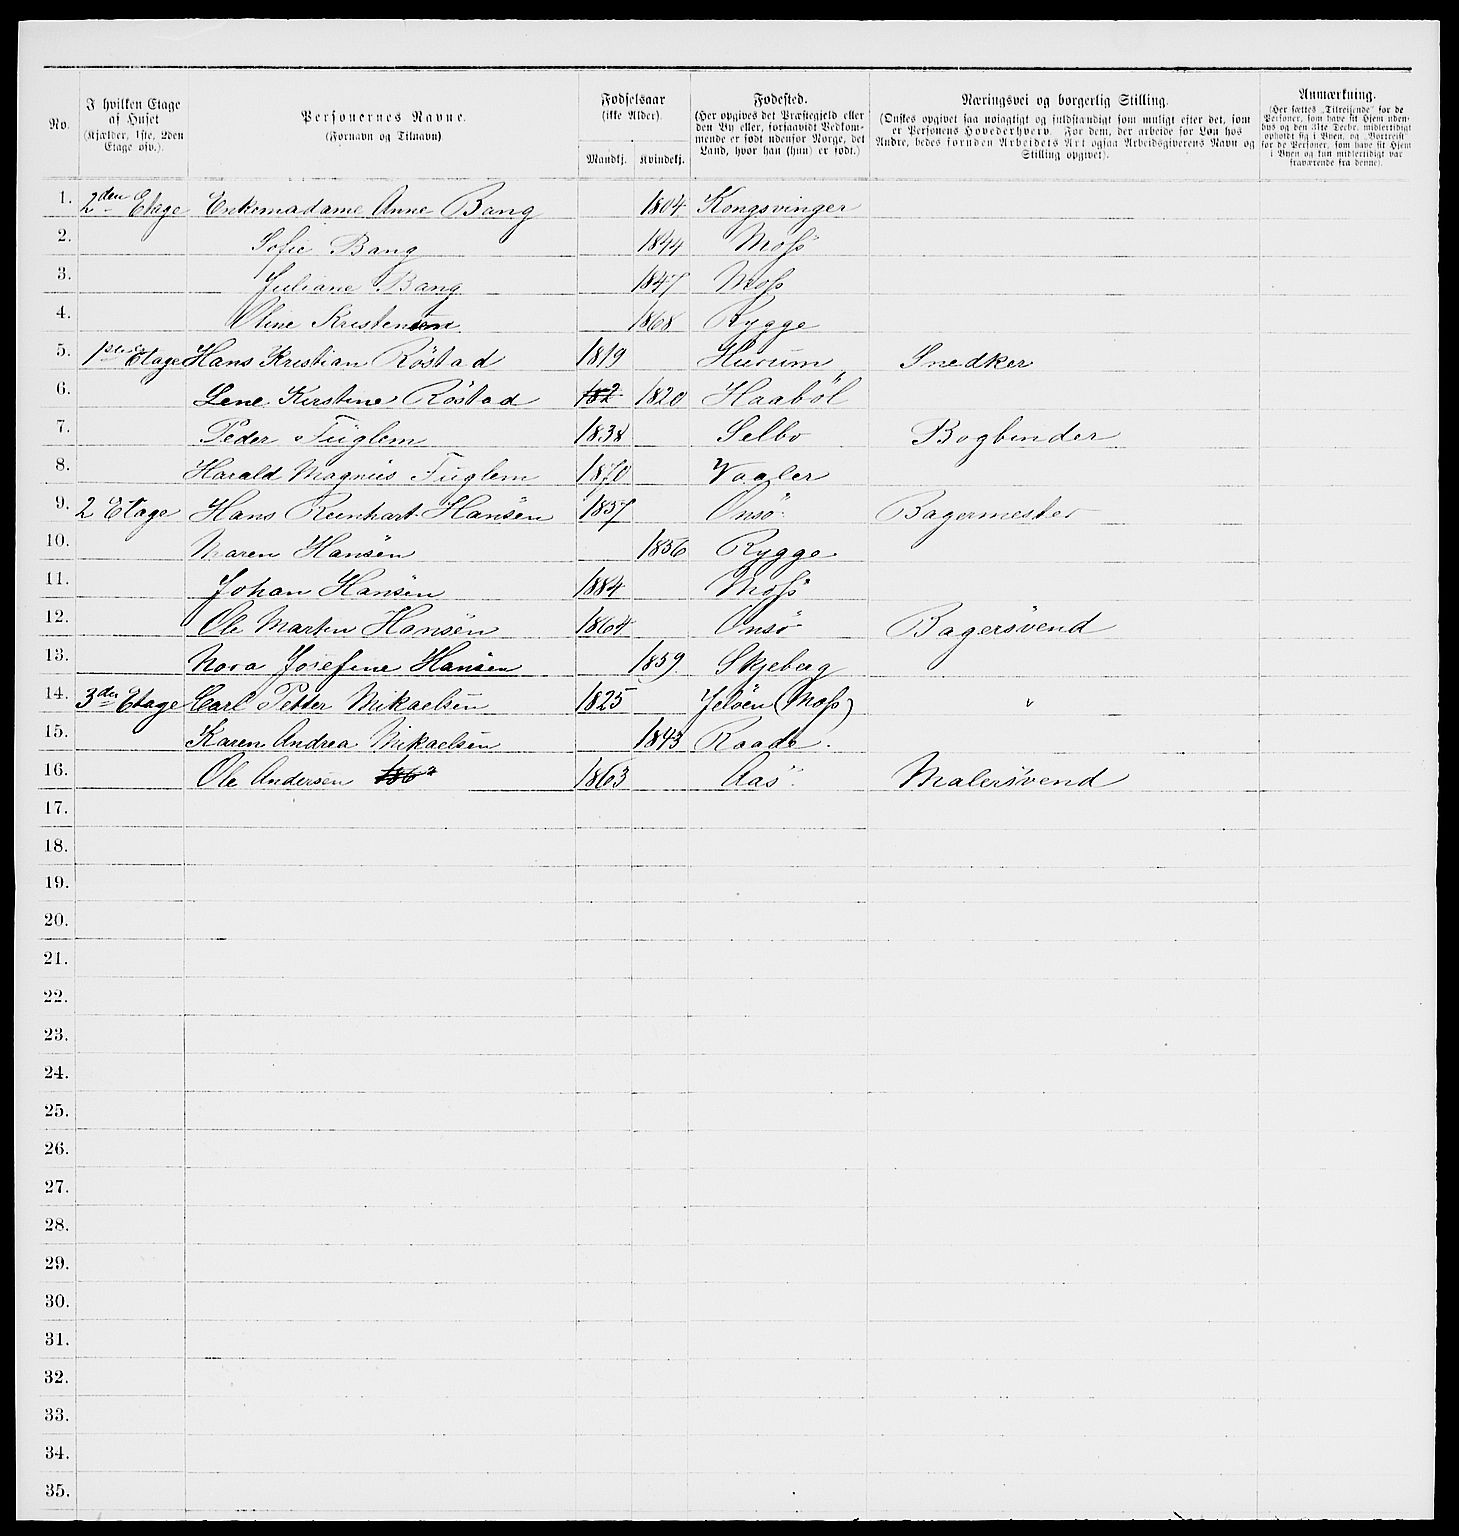 No.
I hvilken Etage
af Huset
(Kjælder, 1ste, 2den
Etage osv.).
Personernes Navne.
(Fornavn og Tilnavn)
Fødselsaar
(ikke Alder).
Mandkj. Kvindekj.
Fødested.
(Her opgives det Præstegjeld eller
den By eller, forsaavidt Vedkom-
mende er født udenfor Norge, det
Land, hvor han (hun) er født.)
Næringsvei og borgerlig Stilling.
(Ønskes opgivet saa nøiagtigt og fuldstændigt som muligt efter det, som
er Personens Hovederhverv. For dem, der arbeide for Løn hos
Andre, bedes foruden Arbeidets Art ogsaa Arbeidsgiverens Navn og
Stilling opgivet).
Anmærkning.
(Her sættes „Tilreisende“ for de
Personer, som have sit Hjem uden-
bys og den 31te Decbr. midlertidigt
opholdt sig i Byen, og „Bortreist“
for de Personer, som have sit Hjem
i Byen og kun midlertidigt var
fraværende fra denne).
1. 2den Etage Enkemadame Anne Bang 1804 Kongsvinger
2. Sofie Bang 1844 Moss
3. Juliane Bang 1847 Moss
4. Oline Kristensen 1868 Rygge
5. 1ste Etage Hans Kristian Röstad 1819 Hurum Snedker
6. Lene Kirstine Röstad 182 1820 Haaböl
7. Peder Fuglem 1838 Selbo Bogbinder
8. Harald Magnus Fuglem 1870 Vaaler
9. 2 Etage Hans Reinhart Hansen 1857 Onsö Bagermester
10. Maren Hansen 1856 Rygge
11. Johan Hansen 1884 Moss
12. Ole Martin Hansen 1864 Onsö Bagersvend
13. Nora Josefine Hansen 1859 Skjeberg
14. 3die Etage Carl Petter Mikaelsen 1825 Jelöen (Moss) "
15. Karen Andrea Mikaelsen 1843 Raade.
16. Ole Andersen 1863 Aas Malersvend
17.
18.
19.
20.
21.
22.
23.
24.
25.
26.
27.
28.
29.
30.
31.
32.
33.
34.
35.